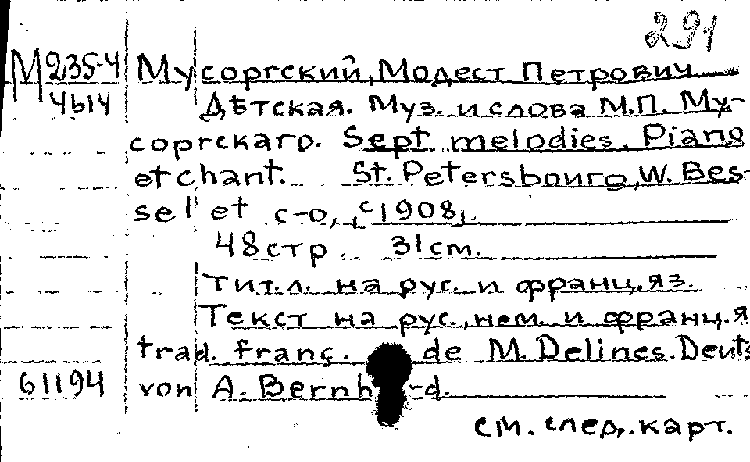 291
М 235-4 Мусоргский, Модест Петрович
4614 Дѣтская. Муз. и слова М.П. Му-
соргскаго. Sept melodies. Piano
et chant. St. Petersbourg, W. Bes-
sel et c-o, c1908.
48 стр. 31 см.
Тит.л. на рус. и франц. яз.
Текст на рус., нем. и франц. я
trad. franç. de M. Delines. Deuts
61194 von A. Bernh rd.
см. след. карт.